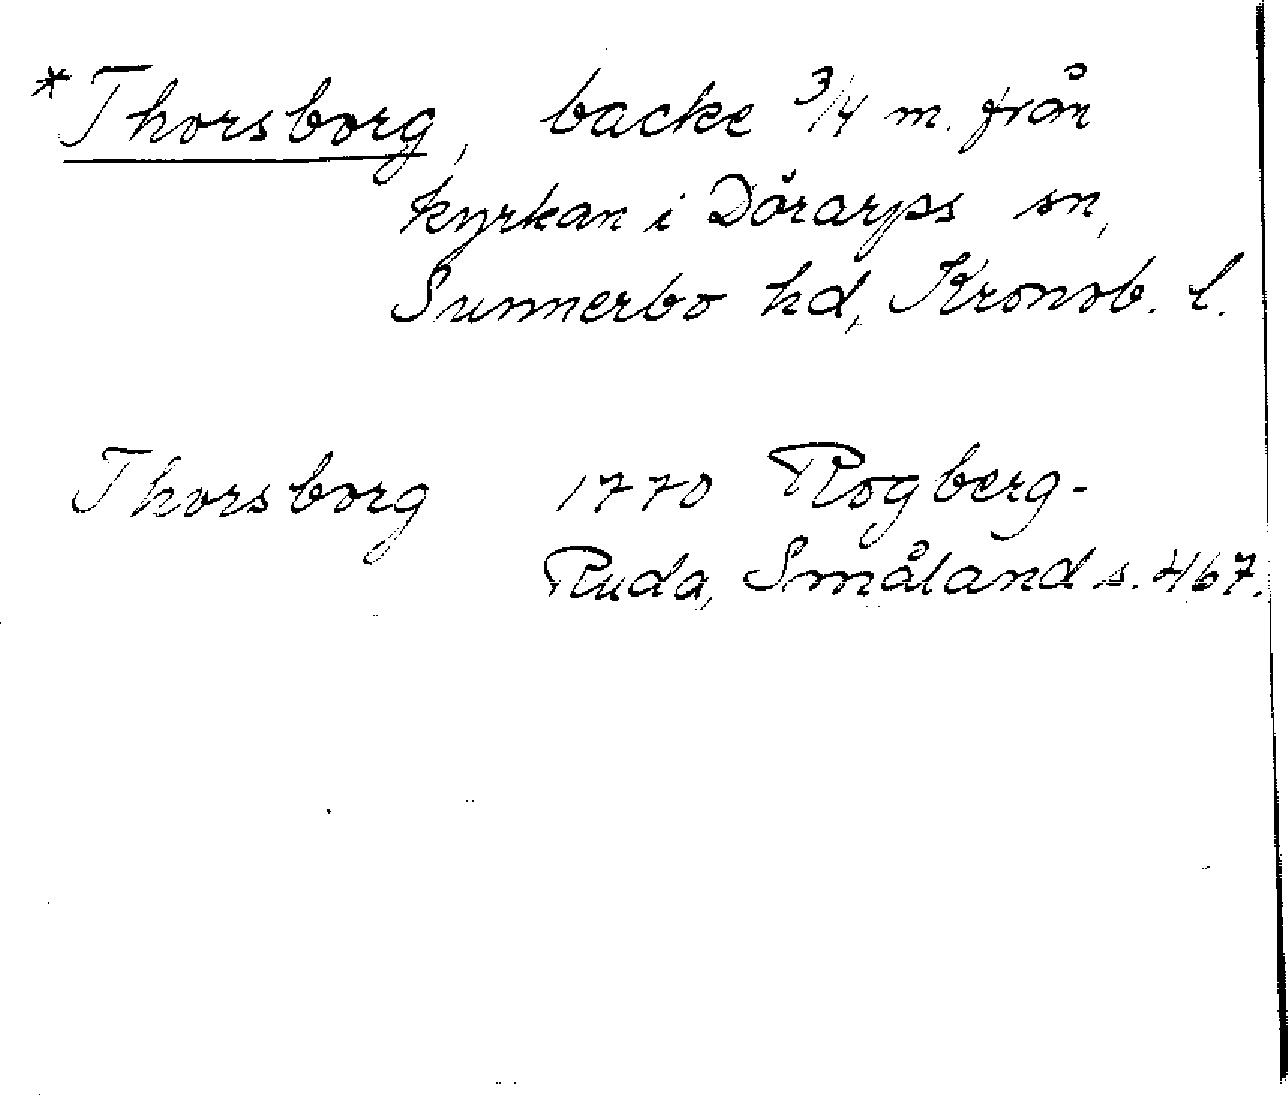 *Thorsborg, backe 3/4 m. från
kyrkan i Dörarps sn,
Sunnerbo hd, Kronob. l.
Thorsborg 1770 Rogberg-
Ruda, Småland s. 467.